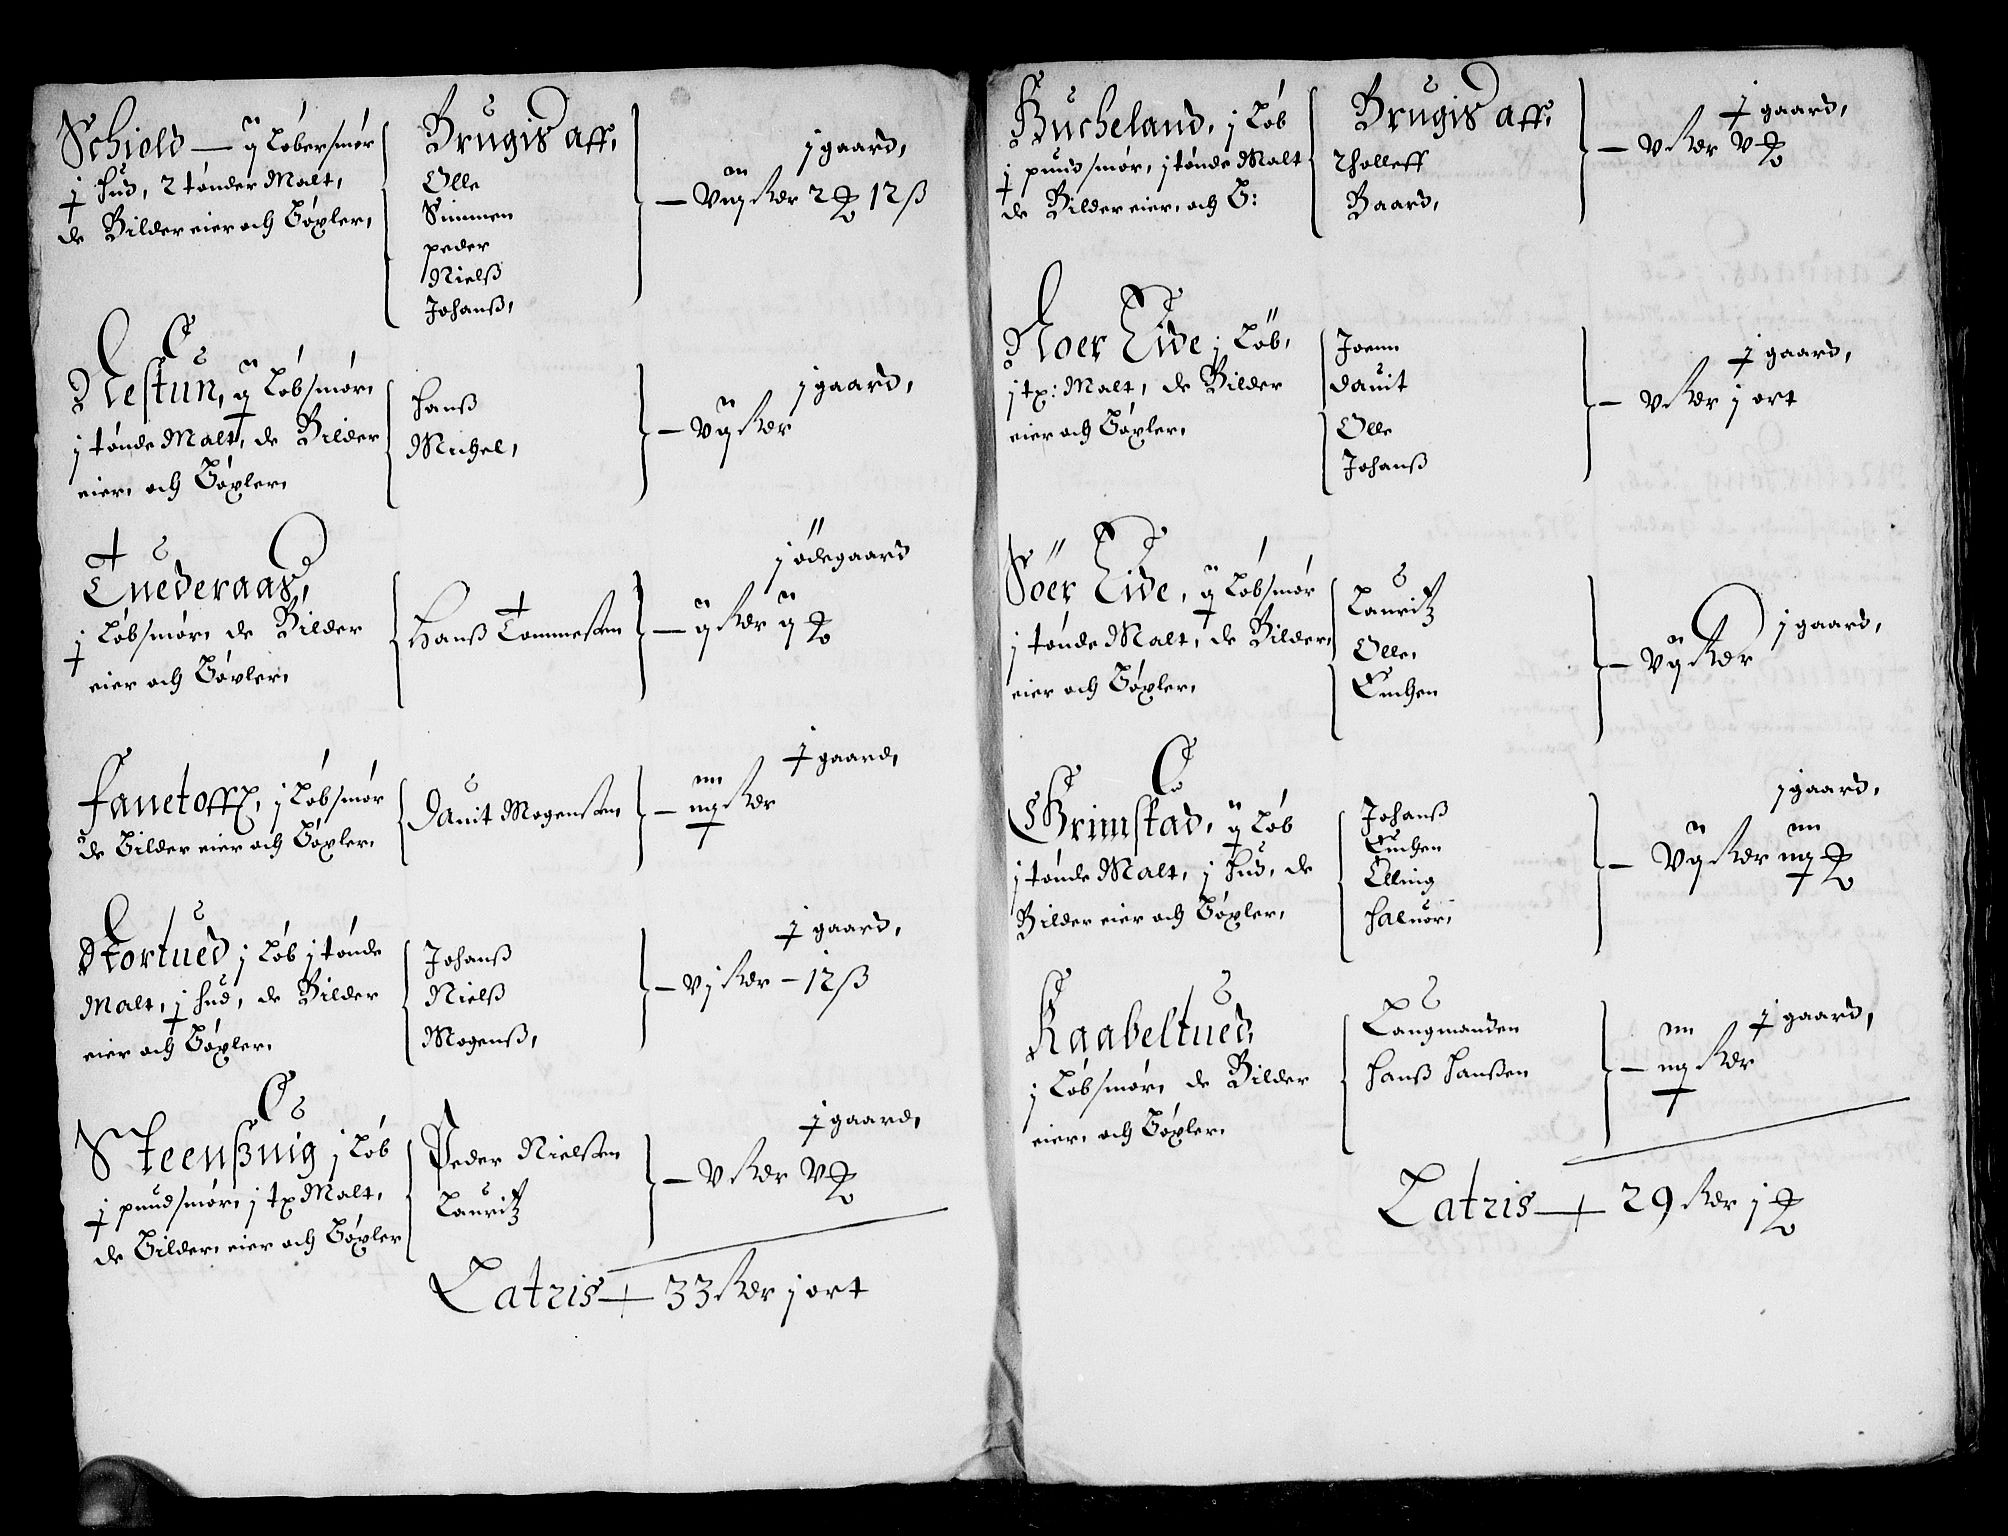 Schiold — ij Løber smør
j hud, 2 tønder Malt,
de Bilder eier och Bøxler,
Brugis aff,
Olle
Simmen
peder
Nielß
Johanß,
j gaard,
— Vij Rdr 2 ℔ 12 ß
Nestun, ij Løb smør,
j tønde Malt, de Bilder
eier, och Bøxler,
Hanß
Michel,
j gaard,
— Vij Rdr
Tuederaas,
j Løb smør, de Bilder
eier och Bøxler,
Hanß Tommeßen
j ødegaard
— ij Rdr ij ℔
Fanetofft, j Løb smør
de Bilder eier och Bøxler,
Dauit Mogenßen
j gaard,
— iiij Rdr
Stortued j Løb j tønde
Malt, j hud, de Bilder
eier och Bøxler,
Johanß
Nielß
Mogenß,
j gaard,
— Vj Rdr – 12 ß
Steenßuig j Løb
j pund smør, j tø Malt,
de Bilder, eier och Bøxler
Peder Nielßen
Lauritz
j gaard,
— V Rdr V ℔
Latris — 33 Rdr j ort
Bucheland, j Løb
j pund smør, j tønde Malt
de Bilder eier, och B:
Brugis aff,
Tholleff
Baard,
j gaard,
— V Rdr V ℔
Noer Eide j Løb,
j tø: Malt, de Bilder
eier och Bøxler,
Joenn
dauit
Olle
Johanß
j gaard,
— V Rdr j ort
Söer Eide, ij Løb smør
j tønde Malt, de Bilder,
eier och Bøxler,
Lauritz
Olle,
Enchen
j gaard,
— Vij Rdr
Grimstad, ij Løb
j tønde Malt, j hud, de
Bilder eier och Bøxler,
Johanß
Enchen
Elling
Haluor,
j gaard,
— Vij Rdr iiij ℔
Raabeltued,
j Løb smør, de Bilder
eier, och Bøxler,
Laugmanden
Hanß Hanßen
j gaard,
— iiij Rdr
Latris — 29 Rdr j ℔